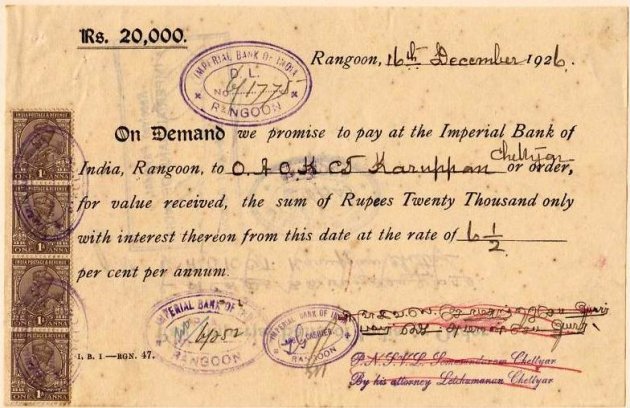 Rs. 20,000.
IMPERIAL BANK OF INDIA
D. L.
No
RANGOON
Rangoon, 16th December 1926.
On Demand we promise to pay at the Imperial Bank of
Chettyar
India, Rangoon, to O. A. O. K. CT. Karuppan or order,
for value received, the sum of Rupees Twenty Thousand only
with interest thereon from this date at the rate of 6 1/2
per cent per annum.
INDIA POSTAGE & REVENUE
1A
ONE ANNA
INDIA POSTAGE & REVENUE
1A
ONE ANNA
INDIA POSTAGE & REVENUE
1A
ONE ANNA
INDIA POSTAGE & REVENUE
1A
ONE ANNA
IMPERIAL BANK OF
No
RANGOON
IMPERIAL BANK OF INDIA
CASHIER
RANGOON
Chettyar
By his attorney Letchumanan Chettyar
I. B. 1—RGN. 47.